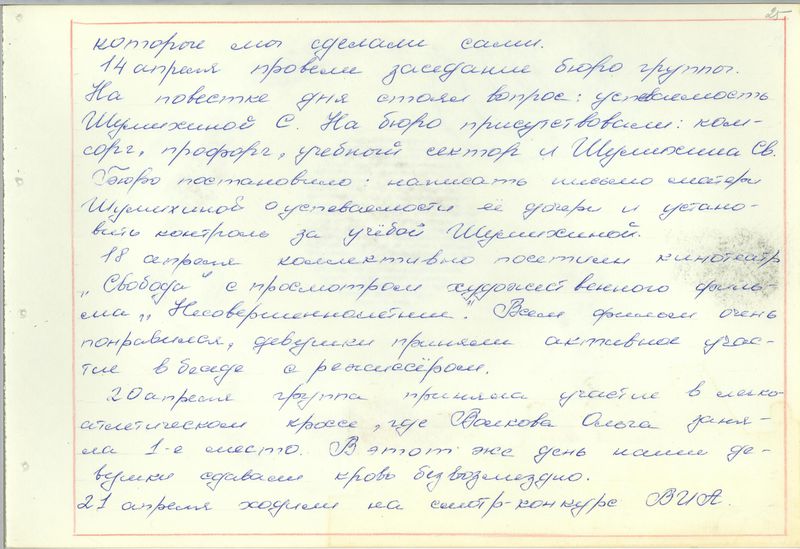 25
которые мы сделали сами.
14 апреля провели заседание бюро группы.
На повестке дня стоял вопрос: успеваемость
Шумихиной С. На бюро присутствовали: ком-
сорг, профорг, учебный сектор и Шумихина Св.
Бюро постановило: написать письмо матери
Шумихиной о успеваемости её дочери и устано-
вить контроль за учёбой Шумихиной.
18 апреля коллективно посетили кинотеатр
„Свобода" с просмотром художественного филь-
ма „Несовершеннолетние". Всем фильм очень
понравился, девушки приняли активное учас-
тие в беседе с режиссёром.
20 апреля группа приняла участие в легко-
атлетическом кроссе, где Волкова Ольга заня-
ла 1-е место. В этот же день наши де-
вушки сдавали кровь безвозмездно.
21 апреля ходили на смотр-конкурс ВИА.